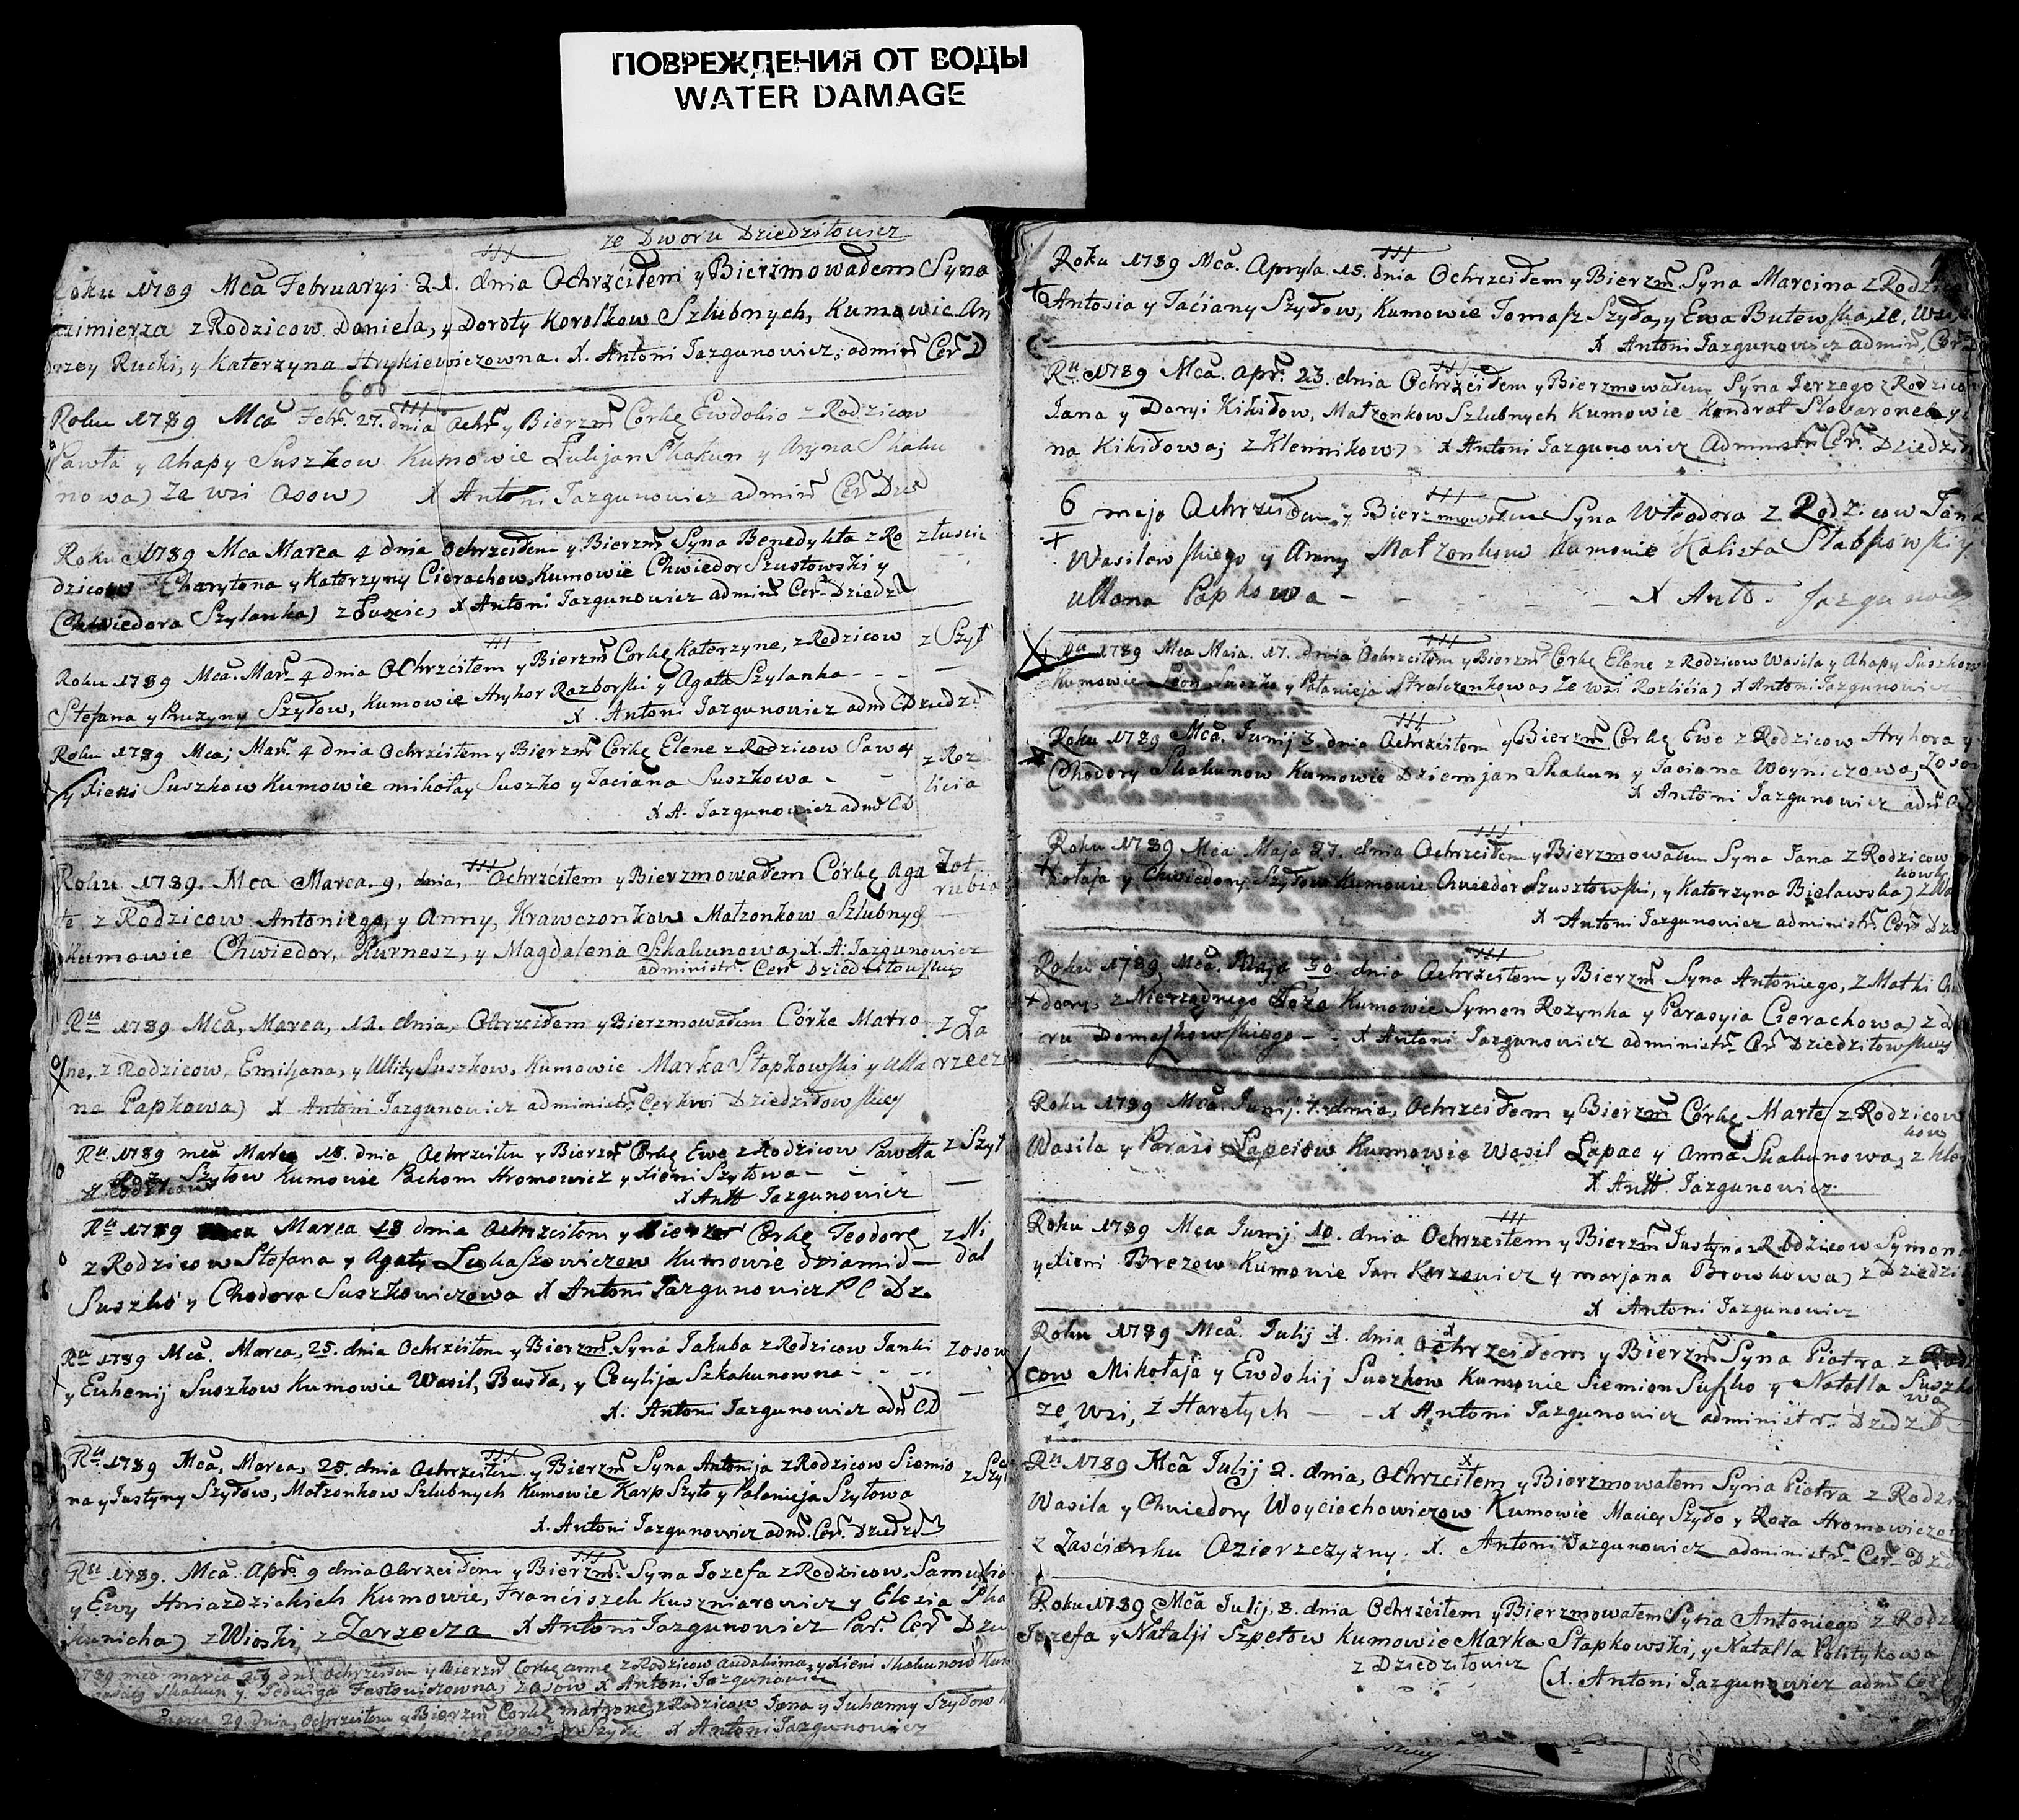 ПОВРЕЖДЕНИЯ ОТ ВОДЫ
WATER DAMAGE
ze Dworu Dziedziłowicz
Roku 1789 Mca Februaryi 21. dnia Ochrzćiłem y Bierzmowałem Syna
Kazimierza z Rodzicow Daniela, y Doroty Korolkow Szlubnych, Kumowie An
drzey Rucki, y Katerzyna Hrykiewiczowna. X. Antoni Jazgunowicz, admiń Cer D
600
Roku 1789 Mca Febr. 27. dnia Ochr y Bierzm Corkę Ewdokio z Rodzicow
Pawła y Ahapy Suszkow Kumowie Lulijan Skakun y Aryna Skaku
nowa) Ze wsi Osow) X Antoni Jazgunowicz admiń Cer Dzie
Roku 1789 Mca Marca 4 dnia Ochrzciłem y Bierzm Syna Benedykta z Ro
dzicow Charytona y Katerzyny Cierachow, Kumowie Chwiedor Szustowski y
Chwiedora Szylanka) z Łuscic, X Antoni Jazgunowicz admiń Cer Dziedz
Roku 1789 Mca. Mar. 4 dnia Ochrzćiłem y Bierzm Corkę Katerzyne, z Rodzicow z Szył
Stefana y Pruzyny Szyłow, Kumowie Hryhor Razborski y Agata Szylanka - - -
X. Antoni Jazgunowicz adm C Dziedz
Roku 1789 Mca; Mar. 4 dnia Ochrzćiłem y Bierzm Corkę Elene z Rodzicow Sawy z Roz
y Xieni Suszkow Kumowie mikołay Suszko y Taciana Suszkowa - - licia
X A. Jazgunowicz adm CD
Roku 1789. Mca Marca. 9, dnia, Ochrzćiłem y Bierzmowałem Córkę Aga
te z Rodzicow Antoniego, y Anny, Krawczonkow Małzonkow Szlubnych
Kumowie Chwiedor, Kurnesz, y Magdalena Szkakunowa, X. A. Jazgunowicz
administr. Cer Dziedziłowskiey
Ru 1789 Mca, Marca, 12. dnia, Ochrzciłem y Bierzmowałem Córke Matro z Za
ne, z Rodzicow, Emiljana, y Ulity Suszkow, Kumowie Marka Stapkowski y Ulla rzecza
na Papkowa) X Antoni Jazgunowicz administr. Cerkwi Dziedziłowskiey
Ru. 1789 mca Marca 18. dnia Ochrzciłm y Bierzm Corkę Ewe z Rodzicow Pawła z Szył
Szyłow Kumowie Pachom Hromowicz y Xieni Szyłowa - - -
X Antt Jazgunowicz
Ru 1789 Marca 18 dnia Ochrzciłem y Bierzm Corkę Teodorę z Ni
z Rodzicow Stefana y Agaty Lukaszowiczow Kumowie Dziamid - dal
Suszko y Chodora Suszkowiczowa X Antoni Jazgunowicz P C Dz.
Ru 1789 Mca. Marca, 25. dnia Ochrzćiłem y Bierzm. Syna Jakuba z Rodzicow Janki z Osow
y Euhenij Suszkow Kumowie Wasil, Busła, y Cecylija Szkakunowna - - -
X. Antoni Jazgunowicz adm CD
Ru 1789 Mca, Marca, 28. dnia Ochrzciłem y Bierzm Syna Antonja z Rodzicow Siemio z Szył
na y Justyny Szyłow, Małzonkow Szlubnych Kumowie Karp Szyło y Palanieja Szyłowa
X. Antoni Jazgunowicz adm. Cer. Dziedz
Ru 1789. Mca. Apr. 9 dnia Ochrzciłem y Bierzm. Syna Jozefa z Rodzicow. Samujło
y Ewy Hniazdzickich Kumowie, Franćiszek Kuszniarowicz y Elesia Ska
kunicha) z Wioski, z Zarzecza X Antoni Jazgunowicz Par. Cer Dzie
1789 mca marca 29 dni Ochrzciłem y Bierzm Corkę anne z Rodzicow Audakima, y Xieni Skakunow Kum
Skakun y Jedwiga Jastowiczowna, z Osow X Antoni Jazgunowicz
marca 29. Dnia, Ochrzciłem y Bierzm Corkę matrone z Rodzicow Jana y Juhanny Szyłow
X Antoni Jazgunowicz
Roku 1789 Mca. Apryla. 15. dnia Ochrzciłem y Bierzm. Syna Marcina z Rodzic
Antosia y Taćiany Szyłow, Kumowie Tomasz Szyła, y Ewa Butewska, ze, Wsi
X Antoni Jazgunowicz admiń, Cer
Ru 1789 Mca. Apr. 23. dnia Ochrzciłem y Bierzmowałem Syna Jerzego z Rodzicow
Jana y Daryi Kikiłow, Małzonkow Szlubnych Kumowie Kondrat
na Kikiłowa; z Klennikow) X Antoni Jazgunowicz Administr Cer. Dziedzi
6 maja Ochrzciłem y Bierzmowałem Syna Wteodora z Rodzicow Jana
Wasilewskiego y Anny Małzonkow Kumowie Kalista Stabkowski y
Ullana Papkowa - - - - - X Antt. Jazgunowicz
Ru 1789 Mca Maia. 17. dnia Ochrzciłem y Bierzm Corkę Elene z Rodzicow Wasila y Ahapy Suszkow
Kumowie Leon Suszko y Palanieja Stralczonkowa, Ze Wsi Rozlićia) X Antoni Jazgunowicz
Roku 1789 Mca. Junij 3 dnia Ochrzciłem y Bierzm Corkę Ewe z Rodzicow Hryhora y
Chodory Skakunow Kumowie Dziemjan Skakun y Taciana Woyniczowa, z Osow
X Antoni Jazgunowicz adm
Roku 1789 Mca Maja 27. dnia Ochrzciłem y Bierzmowałem Syna Jana z Rodzicow
kołaja y Chwiedory Szyłow Kumowie Chwiedór Szusztowski, y Katerzyna Bielawska)
X Antoni Jazgunowicz administr Cer Dzie
Roku 1789 Mca. Maja 30. dnia Ochrzciłem y Bierzm Syna Antoniego, z Matki
dory, z Nierządnego Łoża Kumowie Symon Rozynka y Parasyia Cierachowa)
ru Domaszkowskiego - - X Antoni Jazgunowicz administr. Cer Dziedziłowskiey
Roku 1789 Mca. Junij. 7. dnia, Ochrzciłem y Bierzm Córkę Marte z Rodzicow
Wasila y Parasi Łapciow Kumowie Wasil Łapac y Anna Skakunowa, z Klen
X Antt. Jazgunowicz
Roku 1789 Mca Junij 10. dnia Ochrzciłem y Bierzm Justyna z Rodzicow Symona
y Xieni Brezow Kumowie Jan Kurzewicz y marjana Browkowa) z Dziedzi
X Antoni Jazgunowicz
Roku 1789 Mca. Julij 1. dnia Ochrzciłem y Bierzm Syna Piotra z Rodz
cow Mikołaja y Ewdokij Suszkow Kumowie Siemion Suszko y Natalla Suszko
wa
ze wsi, z Harełych - - X Antoni Jazgunowicz administr. Dziedz
Ru 1789 Mca Julij 2. dnia, Ochrzciłem y Bierzmowałem Syna Piotra z Rodzi
Wasila y Chwiedory Woyciochowiczow Kumowie Maciey Szyło y Roza Hromowiczow
z Zaśćianku Azierzczyzny. X. Antoni Jazgunowicz administr. Cer Dzie
Roku 1789 Mca Julij, 8. dnia Ochrzćiłem y Bierzmowałem Syna Antoniego z Rodzi
Jozefa y Natalji Szpetow Kumowie Marka Stapkowski, y Natalla Politykowa
z Dziedziłowicz (X. Antoni Jazgunowicz adm Cer